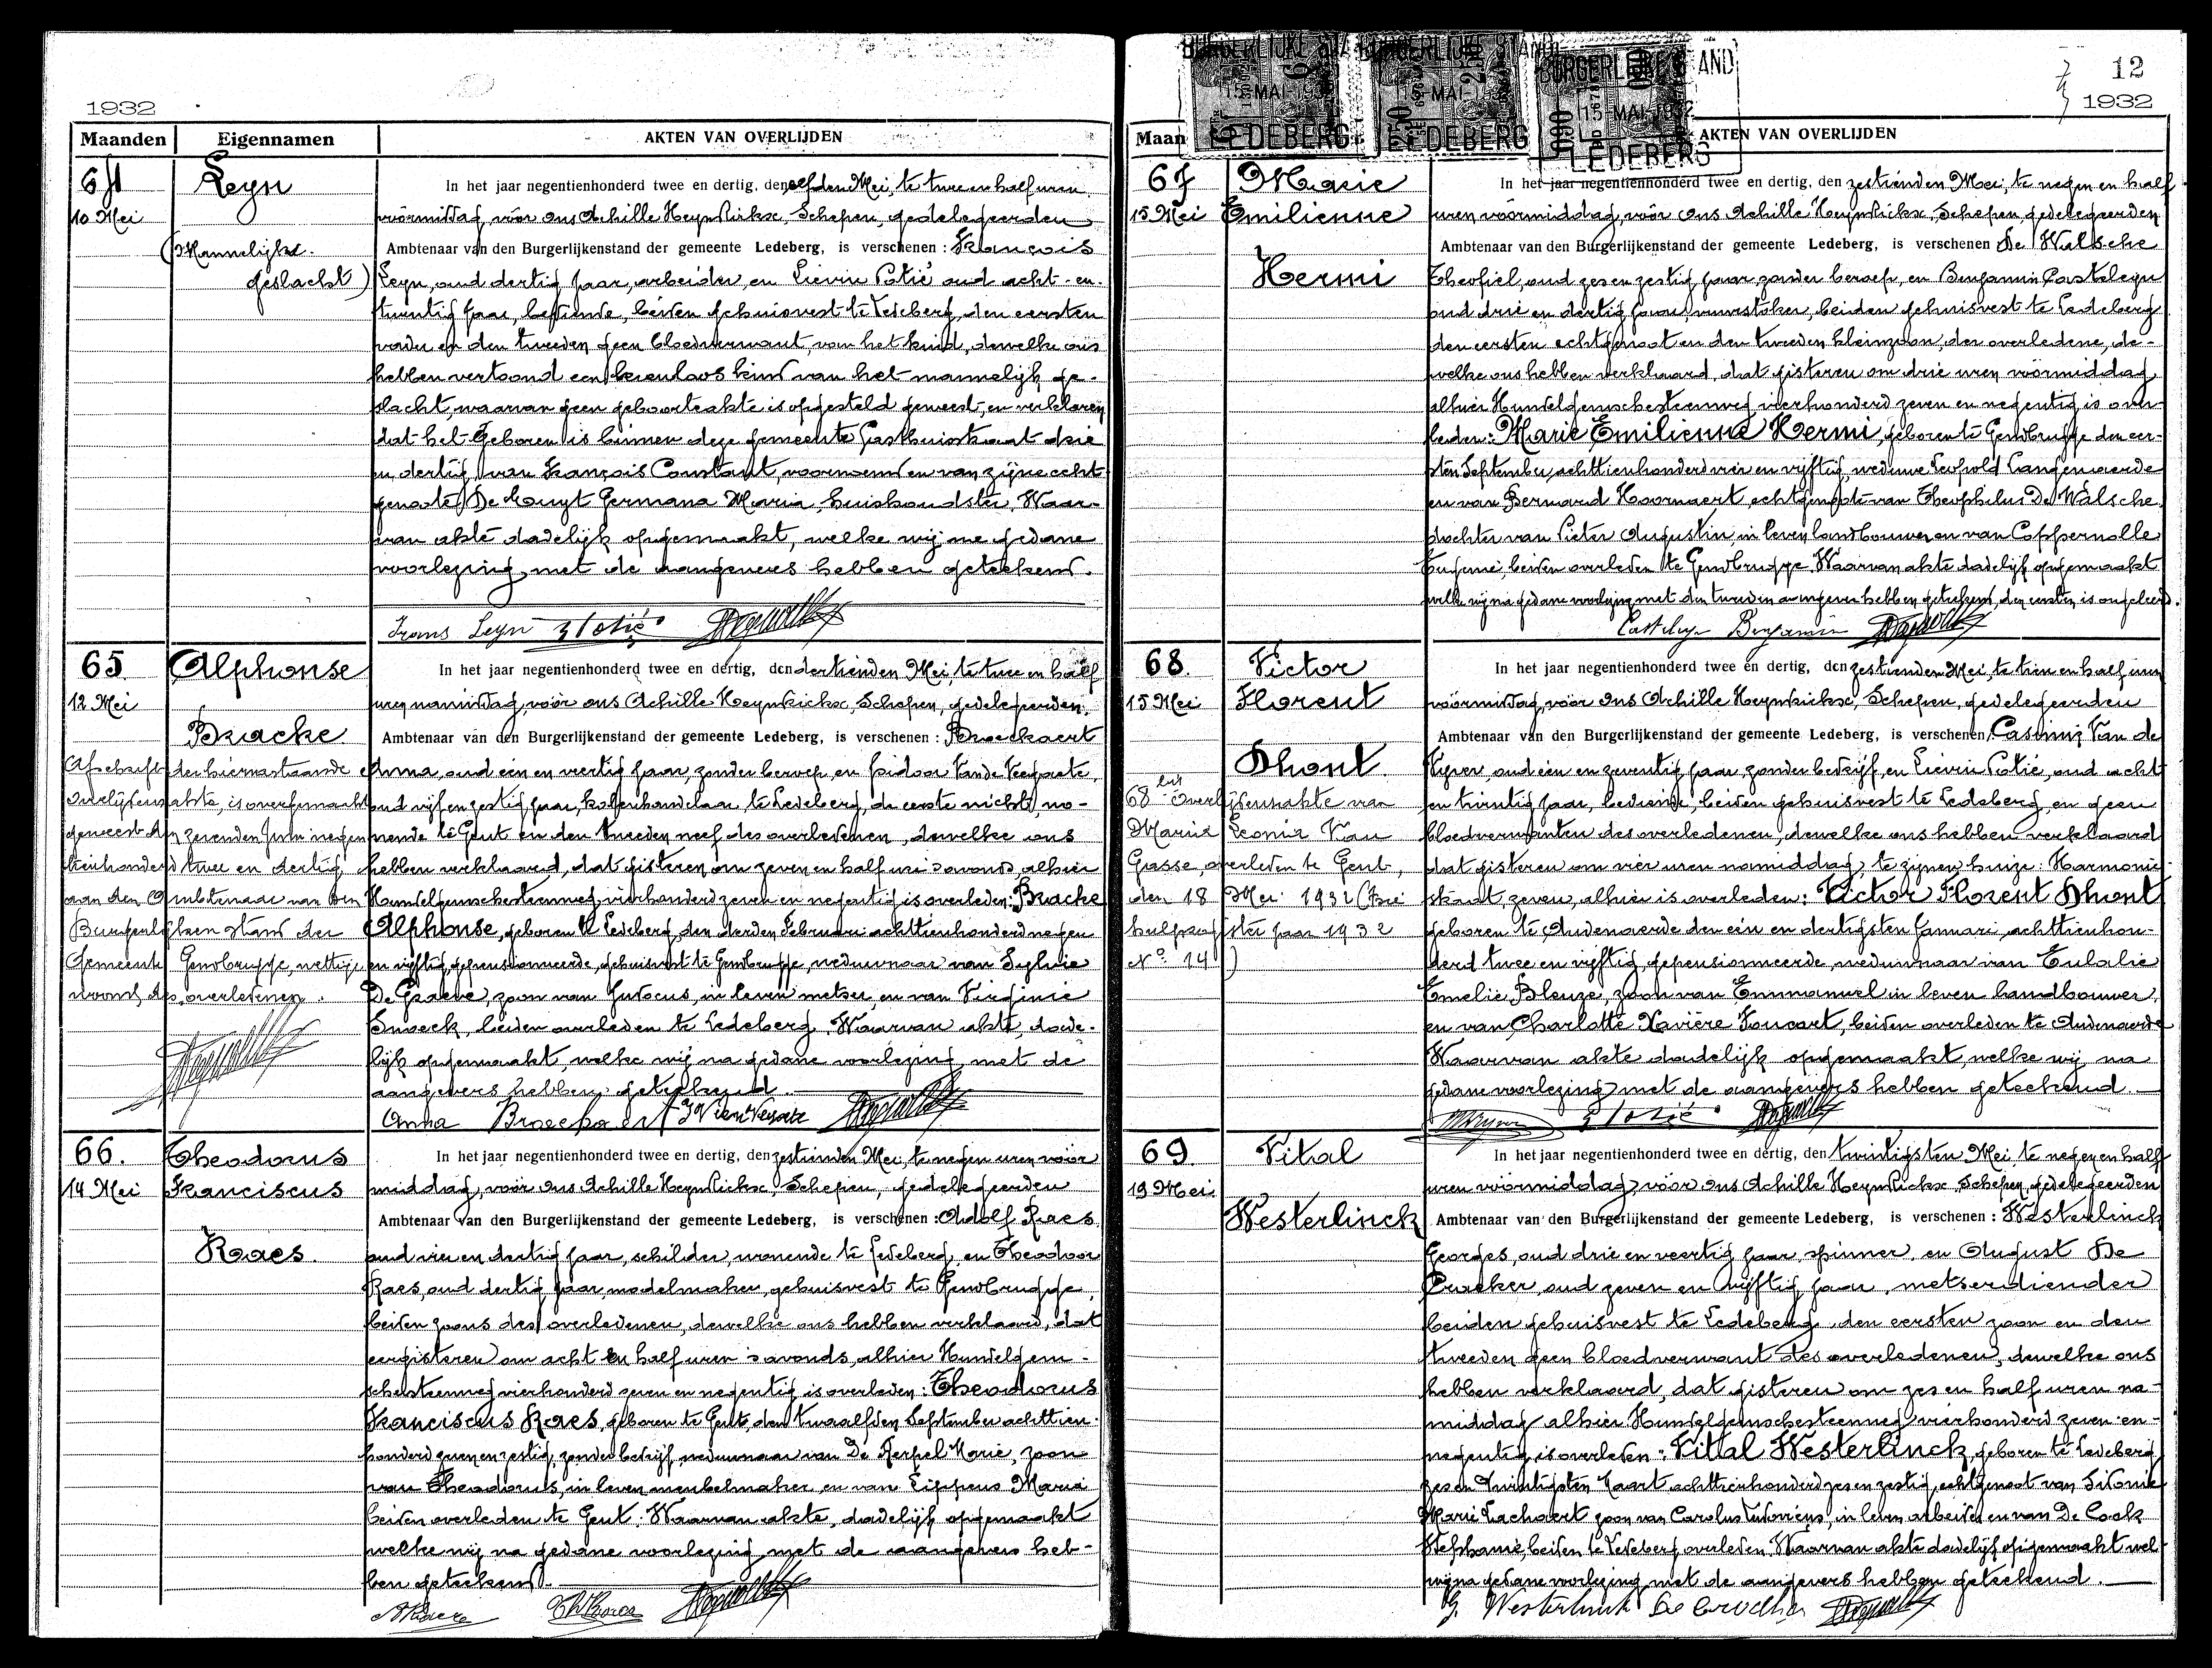 1932
Maanden Eigennamen AKTEN VAN OVERLIJDEN
64
10 Mei
Leyn
(Mannelijke.
geslacht)
In het jaar negentienhonderd twee en dertig, den elfden Mei, te twee en half uren
vóórmiddag, vóór ons Achille Heynderickx, Schepen, gedelegeerden
Ambtenaar van den Burgerlijkenstand der gemeente Ledeberg, is verschenen : François
Leyn, oud dertig jaar, arbeider en Lievin Potié oud acht-en-
twintig jaar, bediende, beiden gehuisvest te Ledeberg, den eersten
vader en den tweeden geen bloedverwant, van het kind, dewelke ons
hebben vertoond een levenloos kind van het mannelijk ge-
slacht, waarvan geen geboorteakte is opgesteld geweest, en verklaren
dat het geboren is binnen deze gemeente Gasthuisstraat drie
en dertig, van François Constant, voornoemd en van zijne echt-
genoote De Muyt Germana Maria, huishoudster, Waar-
van akte dadelijk opgemaakt, welke wij na gedane
voorlezing met de aangevers hebben geteekend.
Frans Leyn L Potié
65
12 Mei
Alphonse
Bracke
Afschrift der hiernastaande
overlijdensakte, is overgemaakt
geweest den zevenden Juni negen
tienhonderd twee en dertig
aan den Ambtenaar van den
Burgerlijken stand der
Gemeente Gentbrugge, wettige
woonst des overledenen.
In het jaar negentienhonderd twee en dertig, den dertienden Mei, te twee en half
uren namiddag, vóór ons Achille Heynderickx, Schepen, gedelegeerden
Ambtenaar van den Burgerlijkenstand der gemeente Ledeberg, is verschenen : Broeckaert
Anna, oud een en veertig jaar, zonder beroep, en Isidoor Van de Veegaete,
oud vijf en zestig jaar, kolenhandelaar te Ledeberg, de eerste nicht, wo-
nende te Gent en den tweeden neef des overledenen, dewelke ons
hebben verklaard, dat gisteren om zeven en half ure 's avonds, alhier
Hundelgemschesteenweg, vierhonderd zeven en negentig is overleden: Bracke
Alphonse, geboren te Ledeberg, den derden Februari achttienhonderd negen
en vijftig, gepensionneerde, gehuisvest te Gentbrugge, weduwnaar van Sylvie
De Graeve, zoon van Judocus, in leven metser, en van Virginie
Snoeck, beiden overleden te Ledeberg. Waarvan akte, dade-
lijk opgemaakt, welke wij na gedane voorlezing met de
aangevers hebben geteekend.
Anna Broeckaert
66.
14 Mei
Theodorus
Franciscus
Raes.
In het jaar negentienhonderd twee en dertig, den zestienden Mei, te negen uren vóór
middag, vóór ons Achille Heynderickx, Schepen, gedelegeerden
Ambtenaar van den Burgerlijkenstand der gemeente Ledeberg, is verschenen : Adolf Raes
oud vier en dertig jaar, schilder, wonende te Ledeberg, en Theodoor
Raes, oud dertig jaar, modelmaker, gehuisvest te Gentbrugge,
beiden zoons des overledenen, dewelke ons hebben verklaard, dat
eergisteren om acht en half uren 's avonds, alhier Hundelgem-
schesteenweg vierhonderd zeven en negentig is overleden : Theodorus
Franciscus Raes, geboren te Gent, den twaalfden September achttien-
honderd zeven en zestig, zonder bedrijf, weduwnaar van De Kerpel Marie, zoon
van Theodorus, in leven meubelmaker en van Lippens Maria
beiden overleden te Gent. Waarvan akte, dadelijk opgemaakt
welke wij na gedane voorlezing met de aangevers heb-
ben geteekend.
ARaes ThRaes
12
1932
BURGERLIJKE STAND
15 MAI 1932
LEDEBERG
Maan AKTEN VAN OVERLIJDEN
67
15 Mei
Marie
Emilienne
Hermi
In het jaar negentienhonderd twee en dertig, den zestienden Mei, te negen en half
uren vóórmiddag, vóór ons Achille Heynderickx, Schepen gedelegeerden
Ambtenaar van den Burgerlijkenstand der gemeente Ledeberg, is verschenen De Walsche
Theofiel, oud zes en zestig jaar, zonder beroep, en Benjamin Casteleyn
oud drie en dertig jaar, vuurstoker, beiden gehuisvest te Ledeberg
den eersten echtgenoot en den tweeden kleinzoon, der overledene, de-
welke ons hebben verklaard, dat gisteren om drie uren vóórmiddag,
alhier Hundelgemschesteenweg vierhonderd zeven en negentig is over-
leden: Marie Emilienne Hermi, geboren te Gentbrugge den eer-
sten September achttienhonderd vier en vijftig, weduwe Leopold Langenaerde
en van Bernard Hoornaert, echtgenoote van Theophilus De Walsche,
dochter van Pieter Augustin in leven landbouwer en van Coppernolle
Eugenie, beiden overleden te Gentbrugge. Waarvan akte dadelijk opgemaakt
welke wij na gedane voorlezing met den tweeden aangever hebben geteekend, den eersten is ongeleerd.
Casteleyn Benjamin
68.
15 Mei
Victor
Florent
Dhont.
68 bis Overlijdensakte van
Maria Leonia Van
Gasse, overleden te Gent,
den 18 Mei 1932 (Zie
hulpregister jaar 1932
No. 14)
In het jaar negentienhonderd twee en dertig, den zestienden Mei, te tien en half uren
vóórmiddag, vóór ons Achille Heynderickx, Schepen, gedelegeerden
Ambtenaar van den Burgerlijkenstand der gemeente Ledeberg, is verschenen, Casimir Van de
Vyver oud een en zeventig jaar, zonder bedrijf, en Lievin Potié, oud acht
en twintig jaar, bediende, beiden gehuisvest te Ledeberg, en geen
bloedverwanten des overledenen, dewelke ons hebben verklaard
dat gisteren om vier uren namiddag, te zijnen huize: Harmonie-
straat, zeven, alhier is overleden: Victor Florent Dhont
geboren te Audenaerde den een en dertigsten Januari, achttienhon-
derd twee en vijftig, gepensionneerde, weduwnaar van Eulalie
Emelie Bleuze, zoon van Emmanuel in leven landbouwer,
en van Charlotte Xavière Foucart, beiden overleden te Audenaerde
Waarvan akte dadelijk opgemaakt, welke wij na
gedane voorlezing met de aangevers hebben geteekend.
L Potié
69
19 Mei
Vital
Westerlinck
In het jaar negentienhonderd twee en dertig, den twintigsten Mei, te negen en half
uren vóórmiddag, vóór ons Achille Heynderickx, Schepen, gedelegeerden
Ambtenaar van den Burgerlijkenstand der gemeente Ledeberg, is verschenen : Westerlinck
Georges, oud drie en veertig jaar, spinner, en August De
Cruecker, oud zeven en vijftig jaar, metserdiender
beiden gehuisvest te Ledeberg, den eersten zoon en den
tweeden geen bloedverwant des overledenen, dewelke ons
hebben verklaard, dat gisteren om zes en half uren na-
middag alhier Hundelgemschesteenweg vierhonderd zeven en-
negentig, is overleden : Vital Westerlinck, geboren te Ledeberg
zes en twintigsten Maart achttienhonderd zes en zestig, echtgenoot van Sidonie
Marie Lachaert zoon van Carolus Ludovicus, in leven arbeider en van De Cock
Stephanie, beiden te Ledeberg overleden. Waarvan akte dadelijk opgemaakt wel-
wij na gedane voorlezing met de aangevers hebben geteekend.
G. Westerlinck